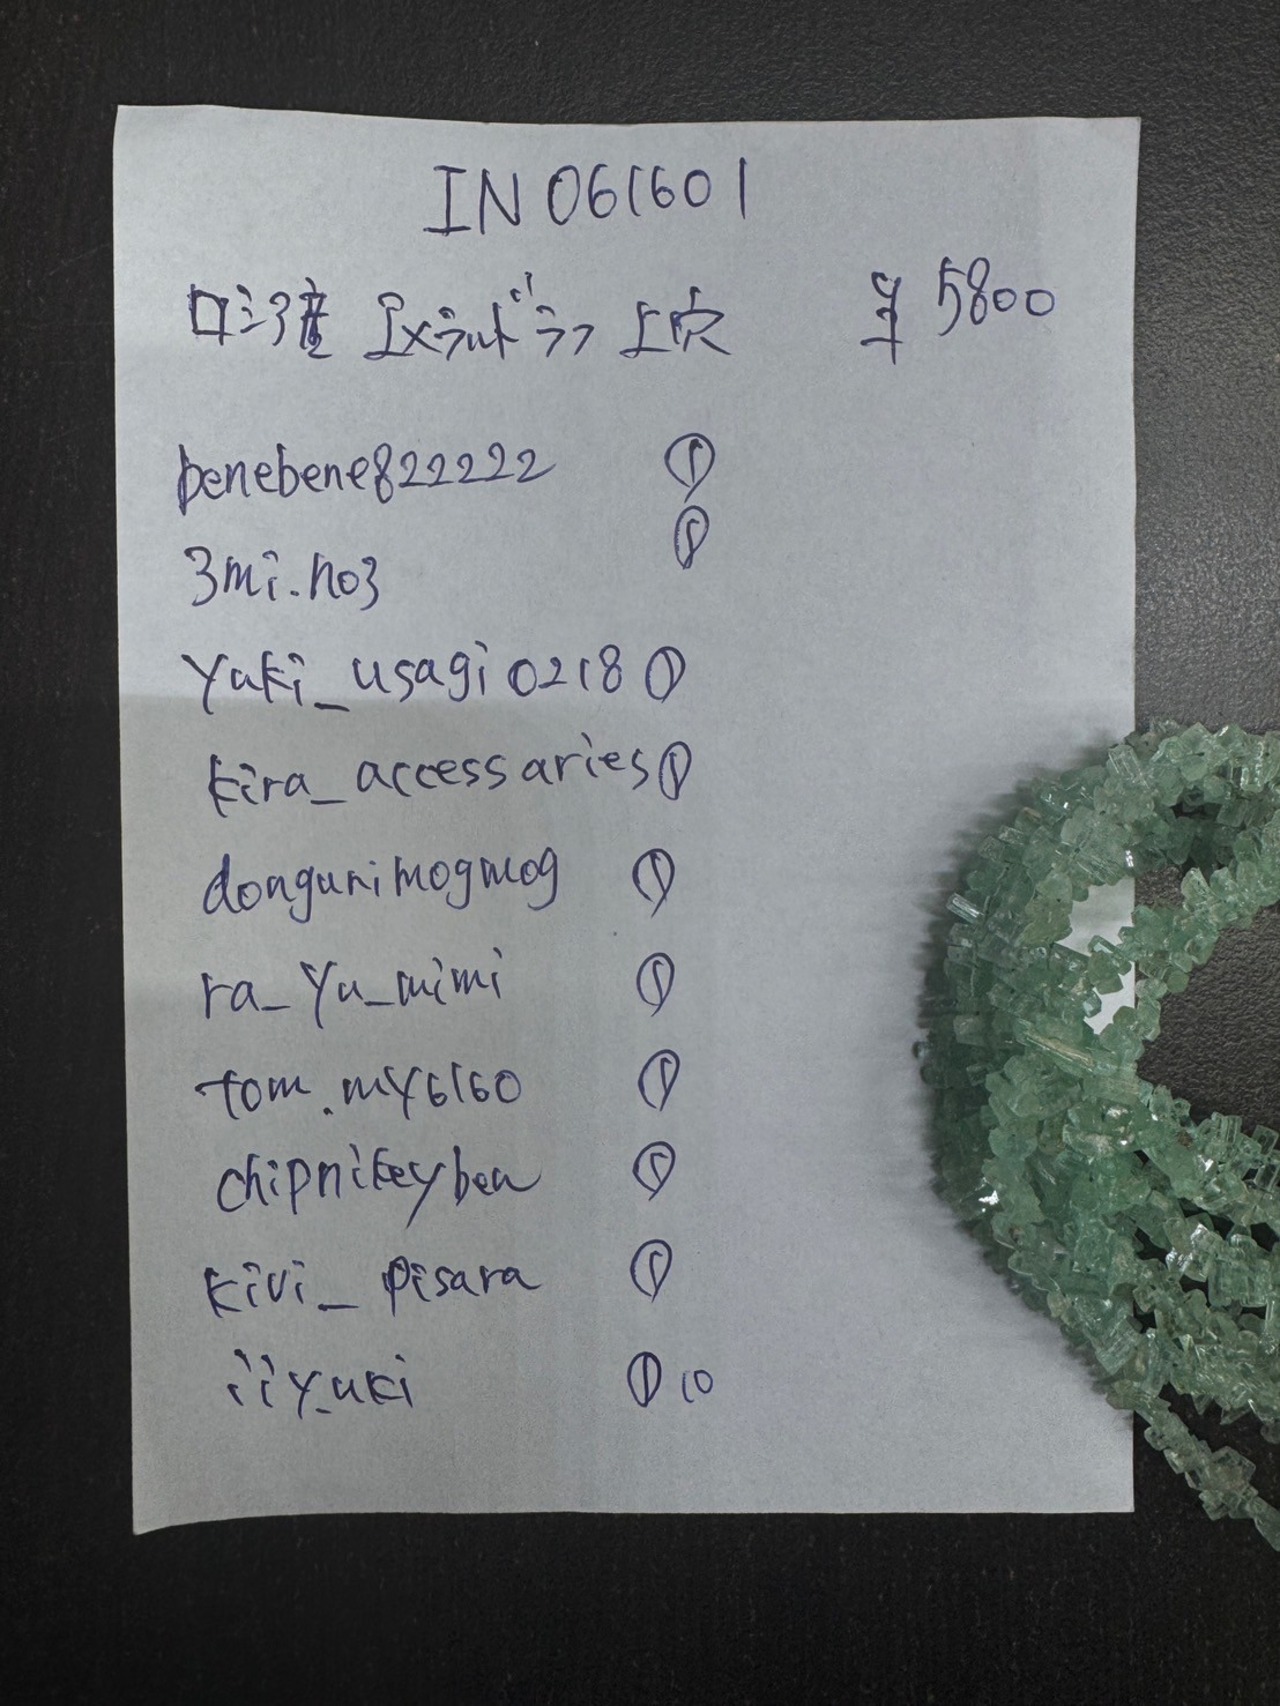 IN061601
ロシア産 エメラルド ラフ 上穴 ¥ 5800
benebene822222 ①
3mi.no3 ①
yuki_usagi0218 ①
kira_accessaries ①
dongurimogmog ①
ra_yu_mimi ①
tom.my6160 ①
chipnikeyben ①
kivi_pisara ①
iiy.uki ① 10